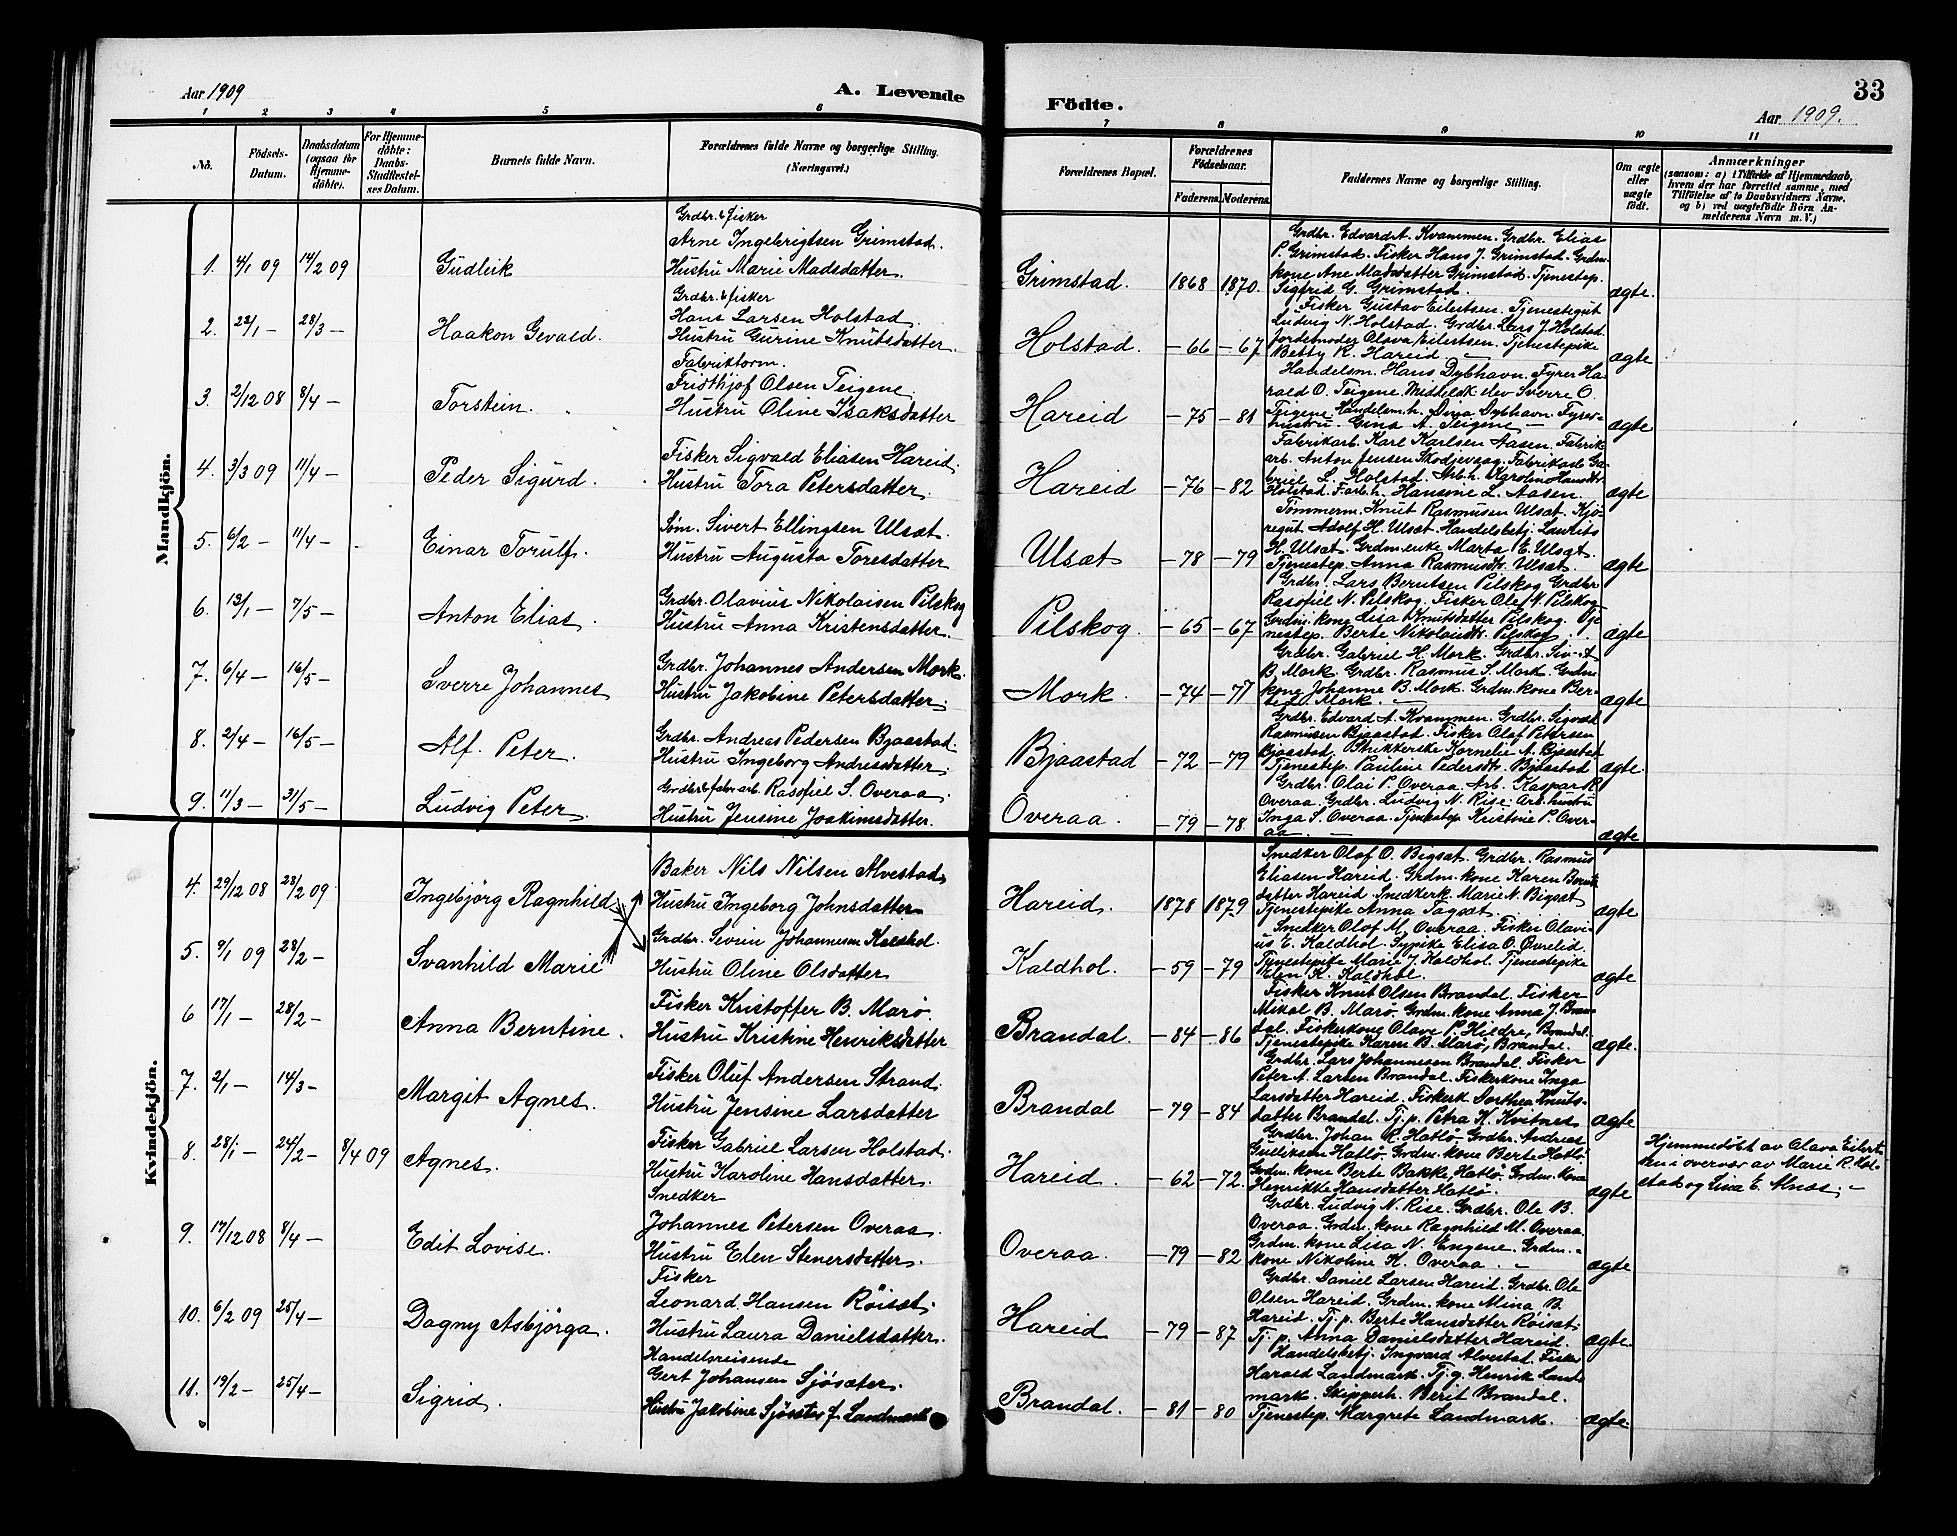 Aar 1909
A. Levende
Födte.
33
Aar 1909.
1 2 3 4 5 6 7 8 9 10 11
No.
Födsels-Datum.
Daabsdatum (ogsaa för Hjemme-döbte).
For Hjemme-döbte: Daabs-Stadfæstel-ses Datum.
Barnets fulde Navn.
Forældrenes fulde Navne og borgerlige Stilling. (Næringsvei.)
Forældrenes Bopæl.
Forældrenes Födselsaar.
Faderens. Moderens.
Faddernes Navne og borgerlige Stilling.
Om ægte eller uægte født.
Anmærkninger
(saasom: a) i Tilfælde af Hjemmedaab, hvem der har forrettet samme, med Tilföielse af to Daabsvidners Navne. og b) ved uægtefödte Börn Anmelderens Navn m. V.)
Mandkjön.
1. 4/1 09 14/2 09 Gudleik
Grdbr. & fisker
Arne Ingebrigtsen Grimstad.
Hustru Marie Madsdatter.
Grimstad. 1868 1870.
Grdbr. Edvard A. Kvammen. Grdbr. Elias
P. Grimstad. Fisker Hans J. Grimstad. Grdm.
kone Ane Madsdatter Grimstad. Tjenestep.
Sigfrid G. Grimstad
ægte.
2. 22/1 — 28/3 — Haakon Gevald.
Grdbr. & fisker
Hans Larsen Holstad
Hustru Gurine Knutsdatter.
Holstad. — 66 — 67
Fisker Gustav Eilertsen. Tjenestegut
Ludvig N. Holstad. Grdbr. Lars J. Holstad
Jordemoder Olava Eilertsen. Tjenestepike
Betty K. Hareid —
ægte
3. 2/12 08 8/4 — Torstein.
Fabrikform.
Fridthjof Olsen Teigene.
Hustru Oline Isaksdatter
Hareid — 75 — 81
Handelsm. Hans Dybhavn. Fyrer Ha-
rald O. Teigene. Middelsk elev Sverre O.
Teigene. Handelsm.h. Dina Dybhavn. Fyrer-
hustru. Gina A. Teigene —
ægte
4. 3/3 09 11/4 — Peder Sigurd.
Fisker Sigvald Eliasen Hareid.
Hustru Tora Petersdatter.
Hareid — 76 — 82
Fabrikarb. Karl Karlsen Aasen. Fabrik
arb. Anton Jensen Skodjevaag. Fabrikarb. Ga-
briel L. Holstad. Arb.h. Karoline Hansdtr
Holstad. F.arb.h. Hansine L. Aasen.
ægte
5. 6/2 — 11/4 — Einar Torulf.
Søm. Sivert Ellingsen Ulsæt.
Hustru Augusta Toresdatter
Ulsæt — 78 — 79
Tømmerm. Knut Rasmusen Ulsæt. Kjø-
regut Adolf H. Ulsæt. Handelsbetj Laurits
H. Ulsæt. Grdm.enke Marta E. Ulsæt.
Tjenestep. Anna Rasmusdtr. Ulsæt.
ægte
6. 13/1 — 7/5 — Anton Elias.
Grdbr. Olavius Nikolaisen Pilskog
Hustru Anna Kristensdatter.
Pilskog. — 65 — 67
Grdbr. Lars Berntsen Pilskog Grdbr
Rasofiel N. Pilskog. Fisker Olef N. Pilskog
Grdm.kone Lisa Knutsdatter Pilskog. Tje-
nestep. Berte Nikolaidtr. Pilskog.
ægte
7. 6/4 — 16/5 — Sverre Johannes
Grdbr. Johannes Andersen Mork.
Hustru Jakobine Petersdatter.
Mork. — 74 — 77
Grdbr. Gabriel H. Mork. Grdbr. Siv-t
B. Mork. Grdbr. Rasmus S. Mork. Grdm
kone Johanne B. Mork. Grdm.kone Ber-
Mork. —
ægte
8. 2/4 — 16/5 — Alf. Peter.
Grdbr. Andreas Pedersen Bjaastad.
Hustru Ingeborg Andreasdatter.
Bjaastad — 72 — 79
Grdbr. Edvard A. Kvammen. Grdbr. Sigvald
Rasmusen Bjaastad. Fisker Olaf Petersen
Bjaastad. Strikkerske Kornelie A. Bjaastad
Tjenestep. Pauline Pedersdtr. Bjaastad
ægte.
9. 11/3 — 31/5 — Ludvig Peter.
Grdbr. & fabr. arb. Rasofiel S. Overaa.
Hustru Jensine Joakimsdatter.
Overaa. — 79 — 78
Grdbr. Olai P. Overaa. Arb. Kaspar R
Overaa. Grdbr. Ludvig N. Rise. Arb. hustru
Inga S. Overaa. Tjenestep Kristine P. Over-
aa. —
ægte
Kvindekjön.
4. 29/12 08 28/2 09. Ingebjörg Ragnhild
Baker Nils Nilsen Alvestad
Hustru Ingeborg Johnsdatter
Hareid. 1878 1879
Snedker Olaf O. Bigsæt. Grdbr. Rasmus
Eliasen Hareid. Grdm.kone Karen Bernts
datter Hareid. Snedkerk. Marie N. Bigsæt
Tjenestepike Anna Fagsæt.
ægte
5. 9/1 09 28/2 — Svanhild Marie
Grdbr. Severin Johannesen Kaldhol.
Hustru Oline Olsdatter
Kaldhol. — 59 — 79
Snedker Olaf M. Overaa. Fisker Olavi-
us E. Kaldhol. Sypike Elisa O. Øvrelid.
Tjenestepike Marie J. Kaldhol. Tjenestepike
Elen K. Kaldhol.
ægte
6 17/1 — 28/2 — Anna Berntine.
Fisker Kristoffer B. Marø.
Hustru Kristine Henriksdatter
Brandal — 84 — 86
Fisker Knut Olsen Brandal. Fisker
Mikal B. Marø. Grdm.kone Anna J. Bran-
dal. Fiskerkone Olave P. Hildre, Brandal.
Tjenestepike Karen B. Marø, Brandal.
ægte.
7. 2/1 — 14/3 — Margit Agnes.
Fisker Oluf Andersen Strand.
Hustru Jensine Larsdatter
Brandal — 79 — 84
Grdbr. Lars Johannesen Brandal. Fisker
Peter A. Larsen Brandal. Fiskerkone Inga
Larsdatter Hareid. Fiskerk. Dorthea Knuts-
datter Brandal. Tj. p. Petra K. Kvitnes
ægte
8. 28/1 — 24/2 — 8/4 09 Agnes.
Fisker Gabriel Larsen Holstad.
Hustru Karoline Hansdatter.
Hareid. — 62 — 72.
Grdbr. Johan R. Hatlø. Grdbr. Andreas
Gulliksen Hatlø. Grdm.kone Berte Hatlø
Grdm.kone Berte Bakke, Hatlø. Grdm.kona
Henrikke Hansdatter Hatlø.
ægte
Hjemmedøbt av Olava Eilert-
sen i overvær av Marie R. Hol-
stad og Lina E. Alnes. —
9. 17/12 08 8/4 — Edit Lovise.
Snedker
Johannes Petersen Overaa.
Hustru Elen Stenersdatter.
Overaa. — 79 — 82
Grdbr. Ludvig N. Rise. Grdbr. Ole B.
Overaa. Grdm.kone Ragnhild M. Overaa.
Grdm.kone Lisa N. Engene. Grdm.-
kone Nikoline K. Overaa. —
ægte
10. 6/2 09 25/4 — Dagny Asbjörga.
Fisker
Leonard Hansen Röisæt.
Hustru Laura Danielsdatter.
Hareid — 79 — 87
Grdbr. Daniel Larsen Hareid. Grdbr. Ole
Olsen Hareid. Grdm.kone Alina B.
Hareid. Tj. p. Berte Hansdatter Røisæt
Tj. p. Anna Danielsdatter Hareid.
ægte.
11. 19/2 — 25/4 — Sigrid.
Handelsreisende
Gert Johansen Sjösæter.
Hustru Jakobine Sjösæter f. Landmark
Brandal. — 81 — 80
Handelsbetj. Ingvard Alvestad. Fisker
Harald Landmark. Tj. g. Henrik Land-
mark. Skipperh. Berit Brandal.
Tjenestep. Margrete Landmark.
ægte.